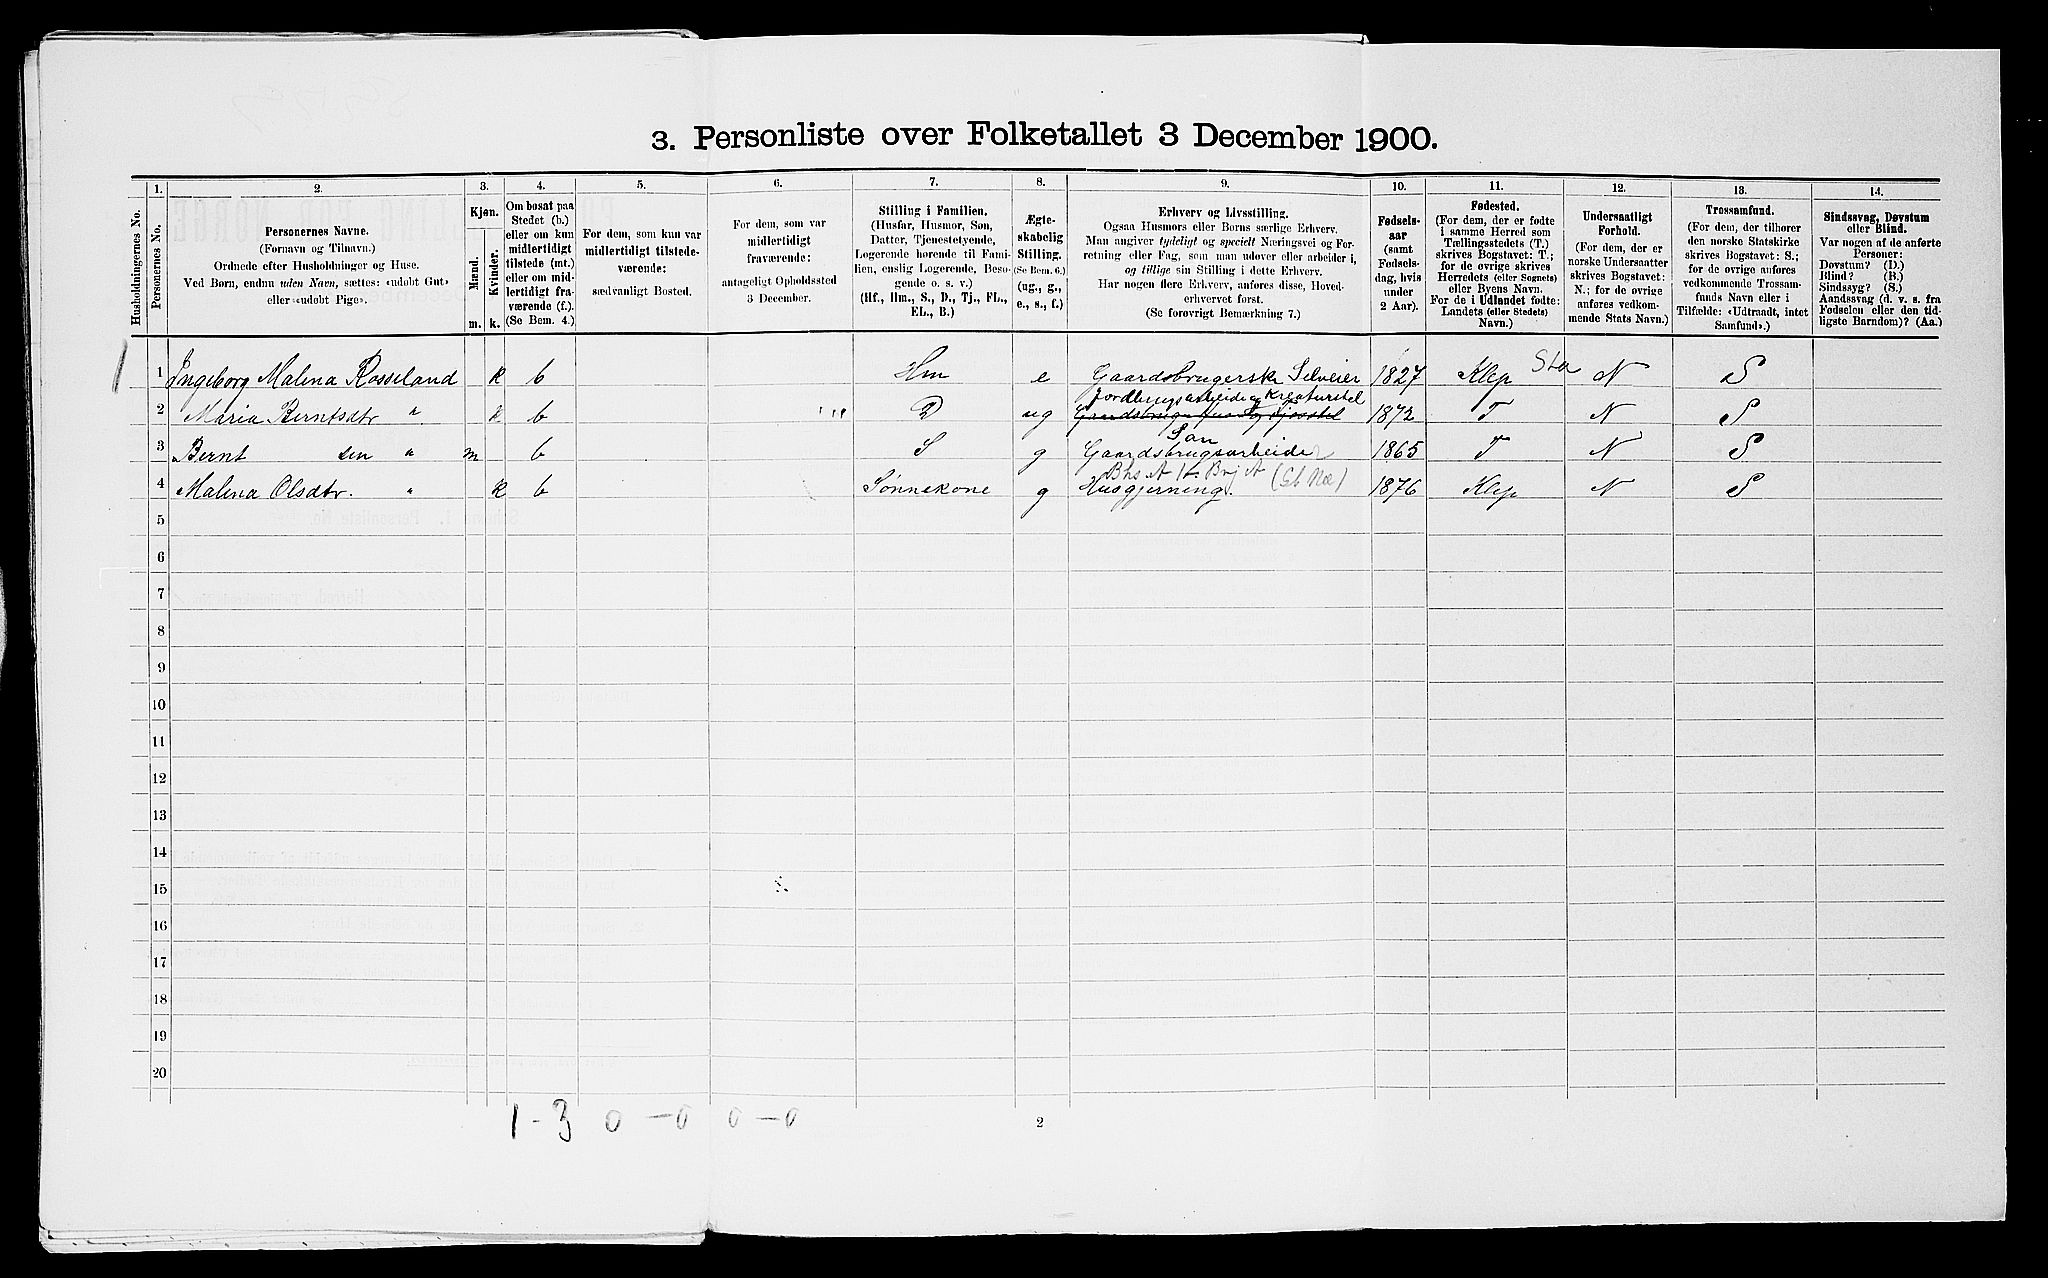 3. Personliste over Folketallet 3 December 1900.
1. 2. 3. 4. 5. 6. 7. 8. 9. 10. 11. 12. 13. 14.
Husholdningernes No.
Personernes No.
Personernes Navne.
(Fornavn og Tilnavn.)
Ordnede efter Husholdninger og Huse.
Ved Børn, endnu uden Navn, sættes: «udøbt Gut»
eller «udøbt Pige».
Kjøn.
Mænd.
Kvinder.
m. k.
Om bosat paa
Stedet (b.)
eller om kun
midlertidigt
tilstede (mt.)
eller om mid-
lertidigt fra-
værende (f.).
(Se Bem. 4.)
For dem, som kun var
midlertidigt tilstede-
værende:
sædvanligt Bosted.
For dem, som var
midlertidigt
fraværende:
antageligt Opholdssted
3 December.
Stilling i Familien.
(Husfar, Husmor, Søn,
Datter, Tjenestetyende,
Logerende hørende til Fami-
lien, enslig Logerende, Besø-
gende o. s. v.)
(Hf., Hm., S., D., Tj., FL.,
EL., B.)
Ægte-
skabelig
Stilling.
(Se Bem. 6.)
(ug., g.,
e., s., f.)
Erhverv og Livsstilling.
Ogsaa Husmors eller Børns særlige Erhverv.
Man angiver tydeligt og specielt Næringsvei og For-
retning eller Fag, som man udøver eller arbeider i,
og tillige sin Stilling i dette Erhverv.
Har nogen flere Erhverv, anføres disse, Hoved-
erhvervet først.
(Se forøvrigt Bemærkning 7.)
Fødsels-
aar
(samt
Fødsels-
dag, hvis
under
2 Aar).
Fødested.
(For dem, der er fødte
i samme Herred som
Tællingsstedets (T.)
skrives Bogstavet: T.;
for de øvrige skrives
Herredets (eller Sognets)
eller Byens Navn.
For de i Udlandet fødte:
Landets (eller Stedets)
Navn.)
Undersaatligt
Forhold.
(For dem, der er
norske Undersaatter
skrives Bogstavet:
N.; for de øvrige
anføres vedkom-
mende Stats Navn.)
Trossamfund.
(For dem, der tilhører
den norske Statskirke
skrives Bogstavet: S.;
for de øvrige anføres
vedkommende Trossam-
funds Navn eller i
Tilfælde: «Udtraadt, intet
Samfund».)
Sindssvag, Døvstum
eller Blind.
Var nogen af de anførte
Personer:
Døvstum? (D.)
Blind? (B.)
Sindssyg? (S.)
Aandssvag (d. v. s. fra
Fødselen eller den tid-
ligste Barndom)? (Aa.)
1 1 Ingeborg Malena Rosseland k b Hm e Gaardsbrugerske Selveier 1827 Klep Sta N S
Jordbrugsarbeide og Kreaturstel
2 Maria Berntsdtr " k b D ug 1872 T N S
Søn
3 Bernt sen " m b S g Gaardsbrugsarbeider 1865 T N S
4 Malena Olsdtr. " k b Sønnekone g Husgjerning. 1876 Klep N S
5
6
7
8
9
10
11
12
13
14
15
16
17
18
19
20
1 - 3 0 - 0 0 - 0
2